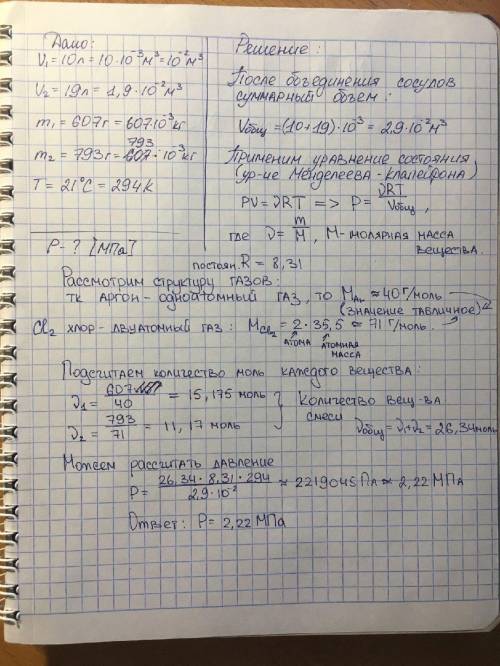 Дано:
V₁ = 10л = 10·10⁻³м³ = 10⁻²м³
V₂ = 19л = 1,9·10⁻²м³
m₁ = 607г = 607·10⁻³кг
m₂ = 793г = 793·10⁻³кг
T = 21°C = 294К
P - ? [МПа]
Решение:
После объединения сосудов
суммарный объем:
Vобщ = (10+19)·10⁻³ = 2,9·10⁻²м³
Применим уравнение состояния
(ур-ие Менделеева-Клапейрона)
PV = νRT => P = νRT/Vобщ,
где ν = m/M, M - молярная масса
вещества.
постоян. R = 8,31
Рассмотрим структуру газов:
тк Аргон - одноатомный газ, то MAr ≈ 40 г/моль
(значение табличное)
Cl₂ хлор - двуатомный газ: MCl₂ = 2·35,5 ≈ 71 г/моль.
атома атомная
масса
Подсчитаем количество моль каждого вещества:
ν₁ = 607/40 = 15,175 моль
ν₂ = 793/71 = 11,17 моль
Количество вещ-ва
смеси
νобщ = ν₁+ν₂ = 26,34моль
Можем рассчитать давление
P = 26,34·8,31·294/2,9·10⁻² ≈ 2219045 Па ≈ 2,22 МПа
Ответ: P = 2,22 МПа